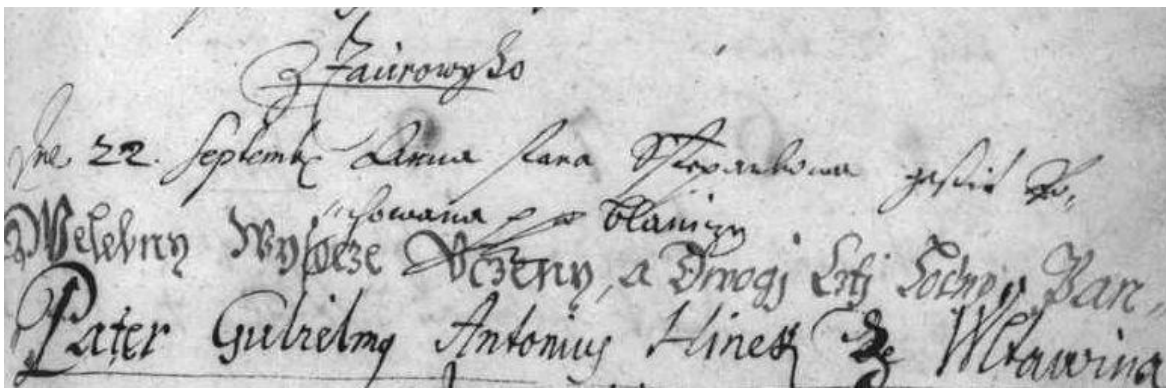 Z Zaurowysko
Dne 22. Septemb Anna stara Sstepankowa gest po,
chowana p p Blaniczy
Welebny Wysocze Vczeny, a Dwogj Czti Hodny Pan,
Pater Gulielmg Antonius Hinek Ze Wltawina